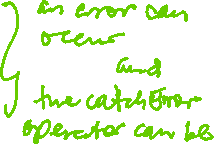 an error can
occur
and
the catchError
operator can be